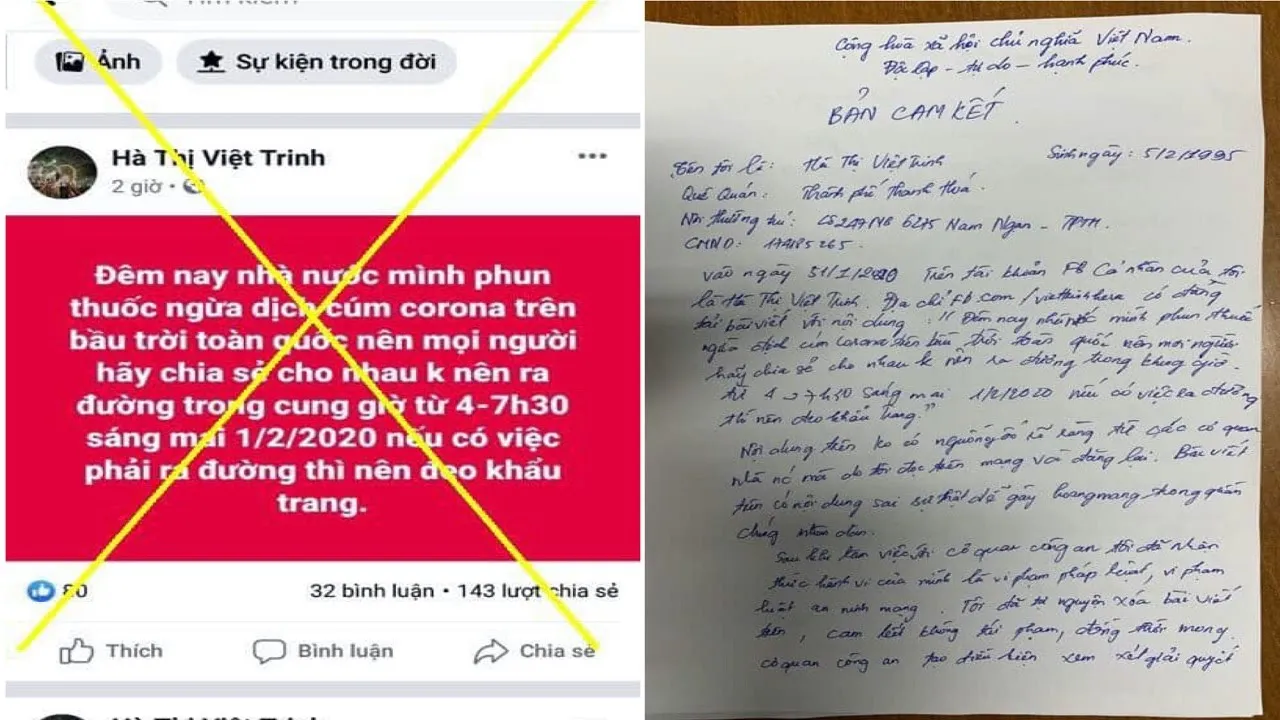 Ảnh
Sự kiện trong đời
Hà Thị Việt Trinh
2 giờ
Đêm nay nhà nước mình phun
thuốc ngừa dịch cúm corona trên
bầu trời toàn quốc nên mọi người
hãy chia sẻ cho nhau k nên ra
đường trong cung giờ từ 4-7h30
sáng mai 1/2/2020 nếu có việc
phải ra đường thì nên đeo khẩu
trang.
80
32 bình luận • 143 lượt chia sẻ
Thích
Bình luận
Chia sẻ
Hà Thị Việt Trinh
Cộng hòa xã hội chủ nghĩa Việt Nam.
Độc lập - tự do - hạnh phúc.
BẢN CAM KẾT.
Tên tôi là: Hà Thị Việt Trinh Sinh ngày: 5/2/1995
Quê Quán: Thành phố Thanh Hoá.
Nơi thường trú: Nam Ngạn - TPTH.
CMND:
Vào ngày 31/1/2020 Trên tài khoản FB Cá nhân của tôi
là Hà Thị Việt Trinh. Địa chỉ Fb.com/ có đăng
tải bài viết với nội dung: " Đêm nay nhà nước mình phun thuốc
ngừa dịch cúm corona trên bầu trời toàn quốc nên mọi người
hãy chia sẻ cho nhau k nên ra đường trong khung giờ.
từ 4 -> 7h30 sáng mai 1/2/2020 nếu có việc ra đường
thì nên đeo khẩu trang."
Nội dung trên ko có nguồn rõ ràng từ các cơ quan
nhà nc mà do tôi đọc trên mạng và đăng lại. Bài viết
trên có nội dung sai sự thật dễ gây hoang mang trong quần
chúng nhân dân.
Sau khi làm việc với cơ quan công an tôi đã nhận
thức hành vi của mình là vi phạm pháp luật, vi phạm
luật an ninh mạng. Tôi đã tự nguyện xóa bài viết
trên, cam kết không tái phạm, đồng thời mong
cơ quan công an tạo điều kiện xem xét giải quyết